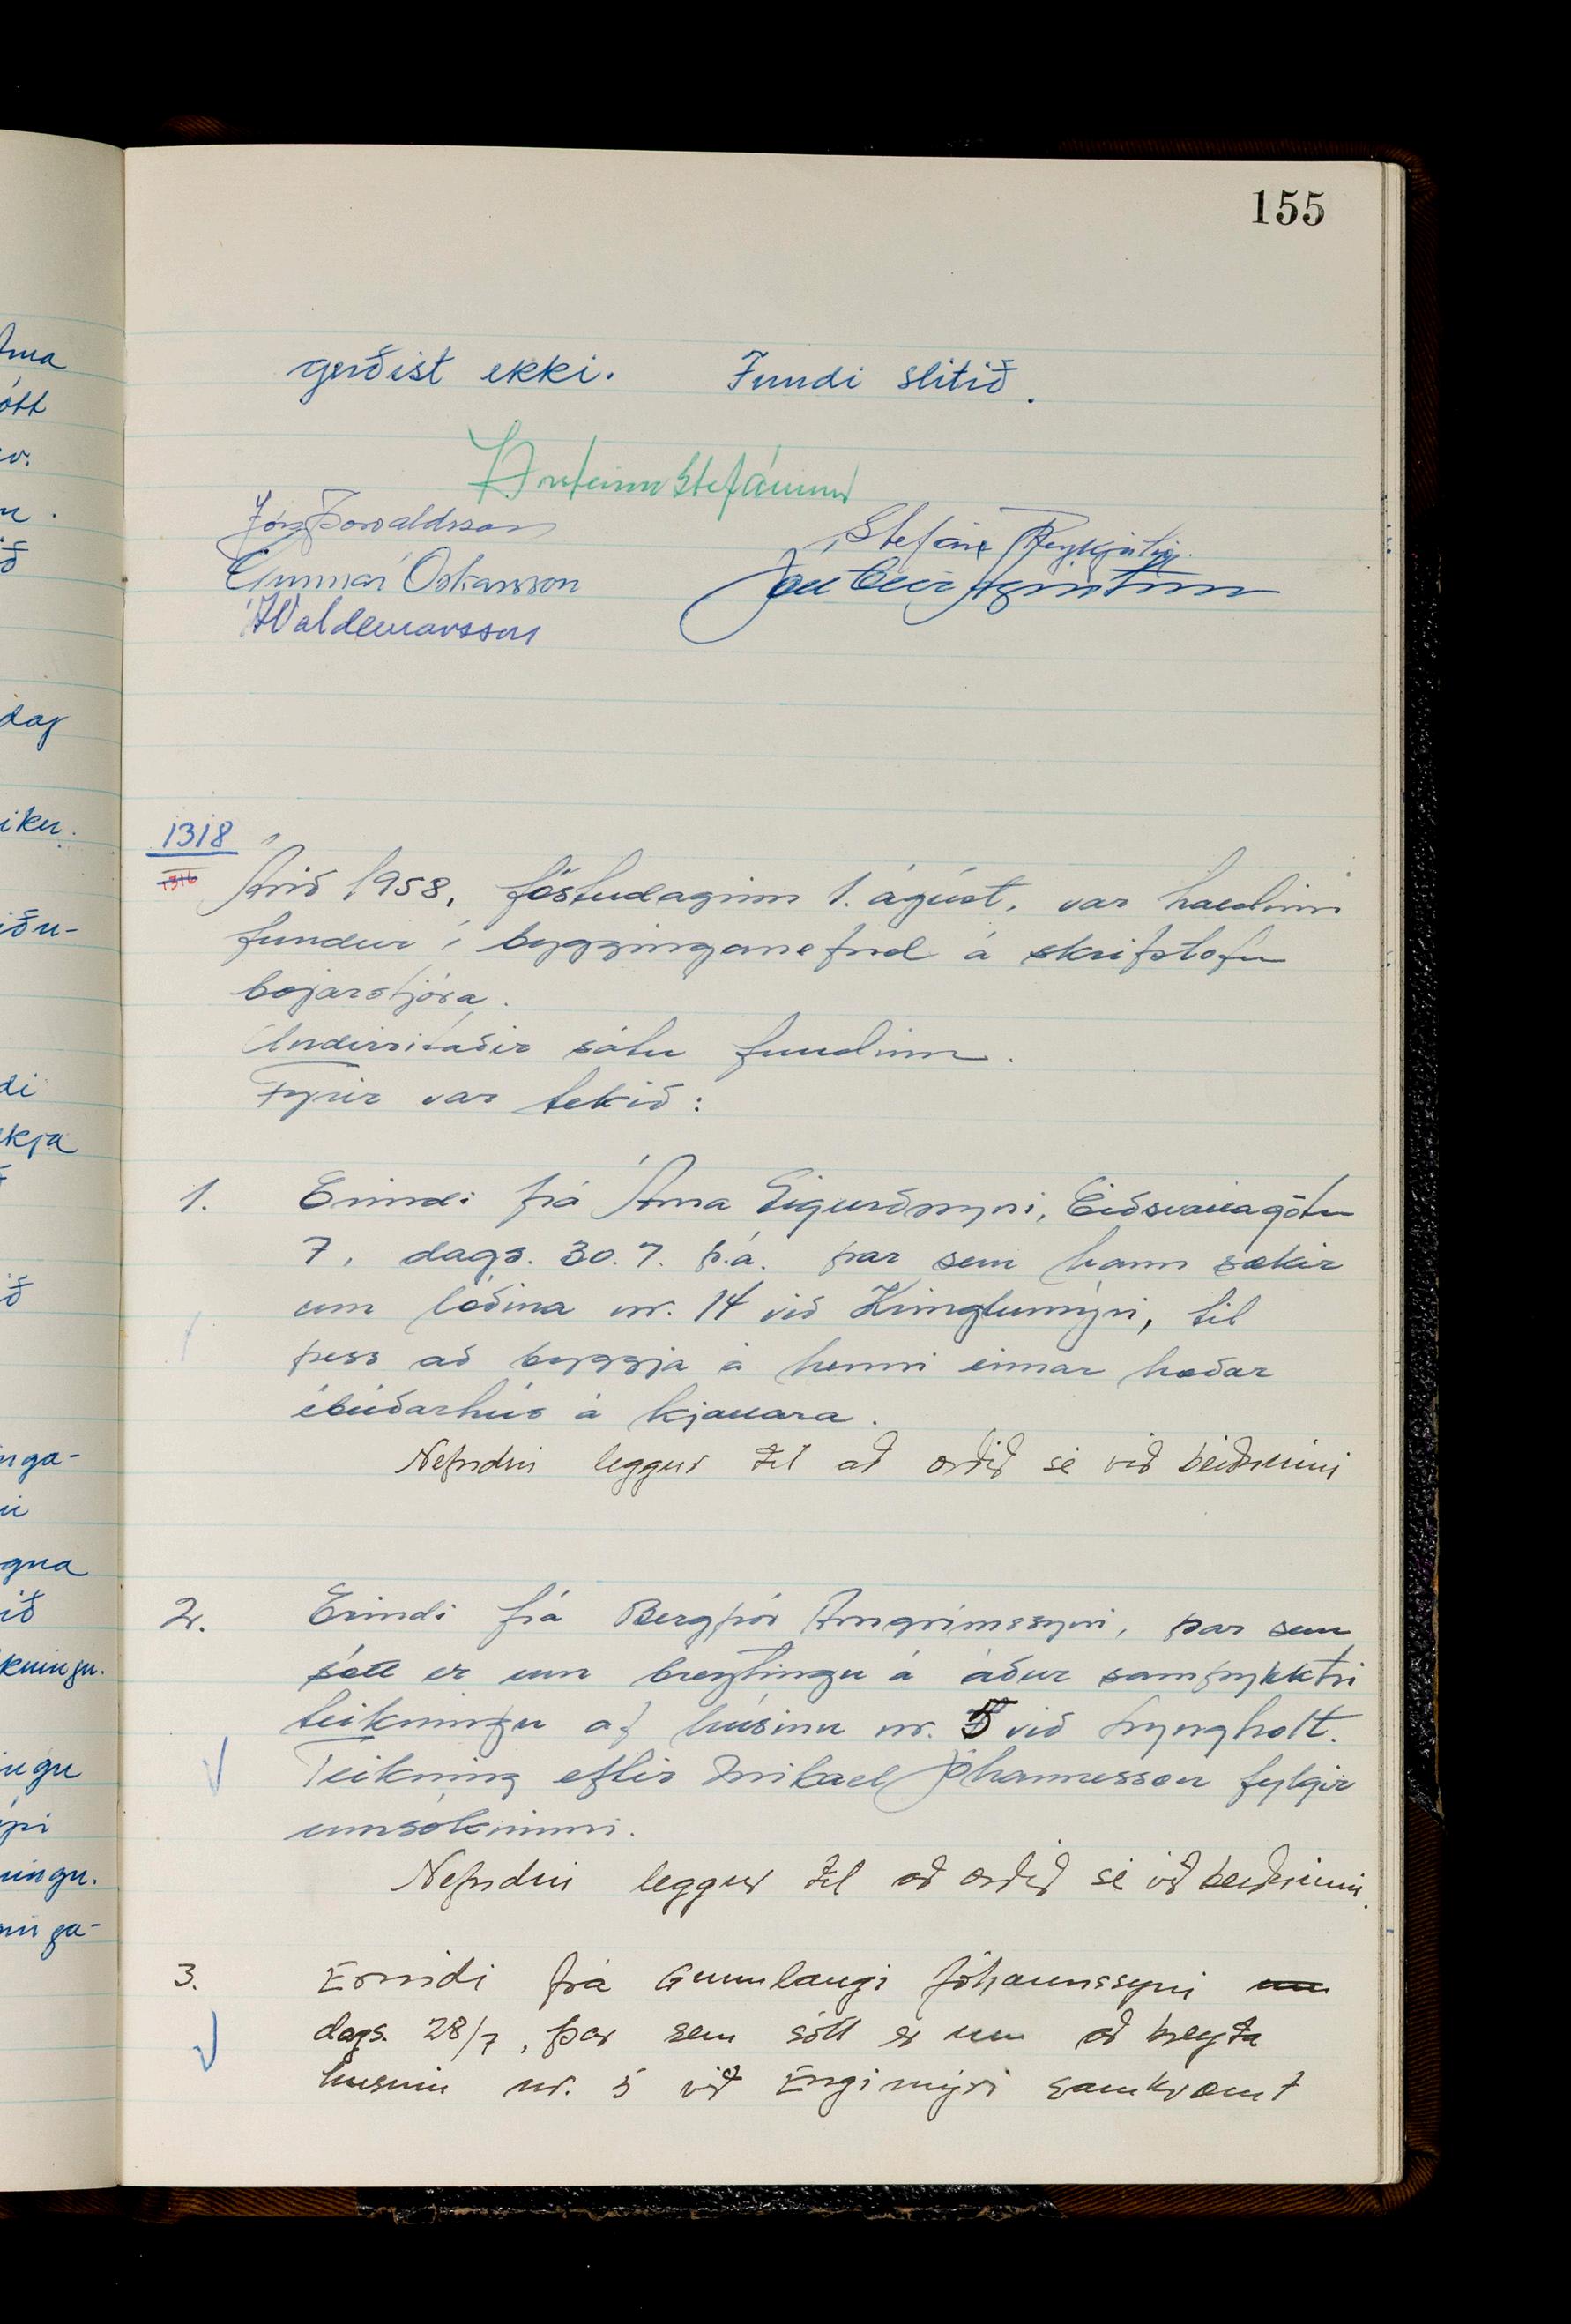 155
gerðist ekki. Fundi slitið.
Jón Þorvaldsson
Stefán Reykjalín
Gunnar Óskarsson
Waldemarsson
1318
1316
Árið 1958, föstudaginn 1. ágúst, var haldinn
fundur í bygginganefnd á skrifstofu
bæjarstjóra.
Undirritaðir sátu fundinn.
Fyrir var tekið:
1. Erindi frá Árna Sigurðssyni, Eiðsvallagötu
7, dags. 30.7. þ.á. þar sem hann sækir
um lóðina nr. 14 við Kringlumýri, til
þess að byggja á henni einnar hæðar
íbúðarhús á kjallara.
Nefndin leggur til að orðið sé við beiðninni
2. Erindi frá Bergþór Arngrímssyni, þar sem
sótt er um breytingu á áður samþykktri
teikningu af húsinu nr. 5 við Lyngholt.
Teikning eftir Mikael Jóhannesson fylgir
umsókninni.
Nefndin leggur til að orðið sé við beiðninni.
3. Erindi frá Gunnlaugi Jóhannssyni um
dags. 28/7, þar sem sótt er um að breyta
húsinu nr. 5 við Engimýri samkvæmt